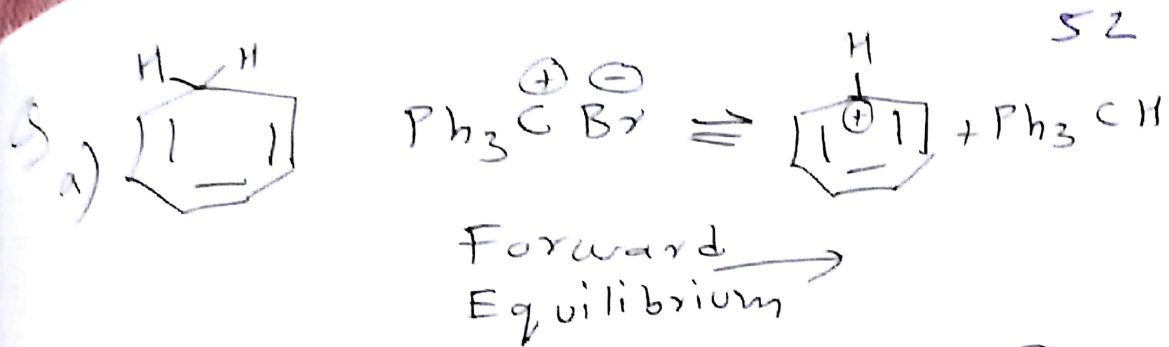 52
H H
a) Ph₃C⊕ Br⊖ ⇌ H ⊕ + Ph₃CH
Forward →
Equilibrium